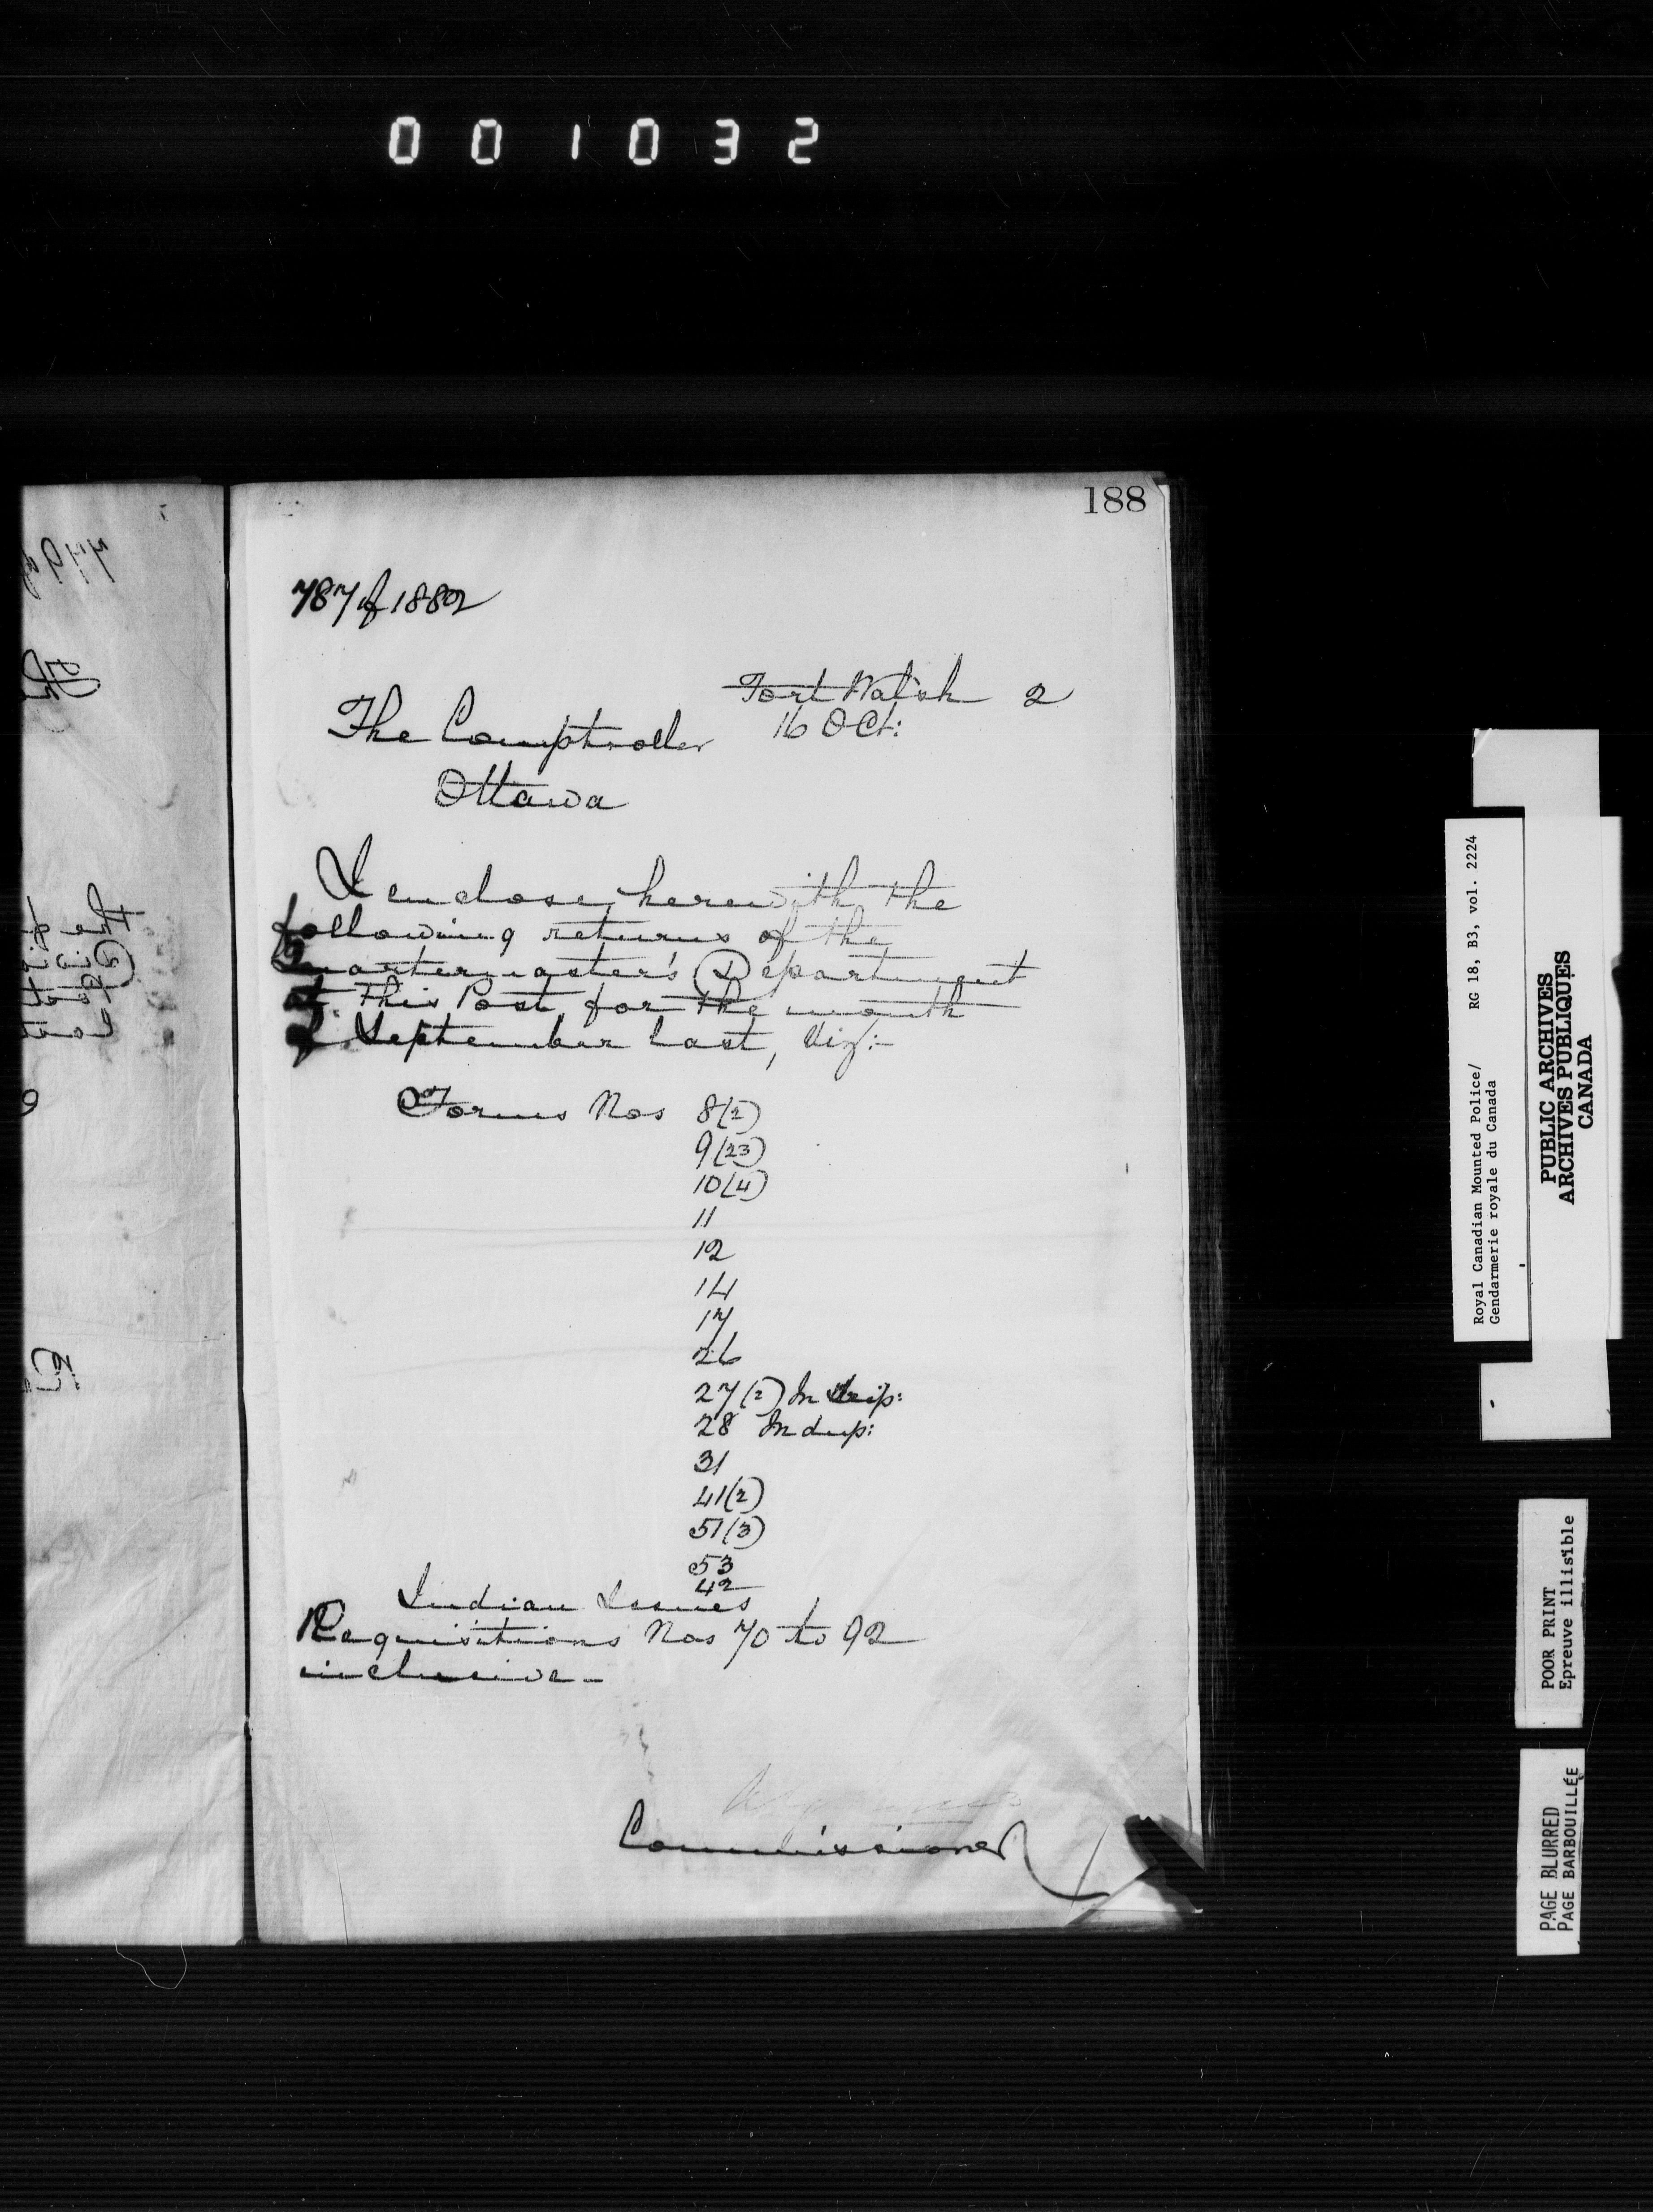 001032
188
787 of 1882
Fort Walsh 2
16 Oct:
The Comptroller
Ottawa
I enclose herewith the
following returns of the
Quartermaster's Department
at this Post for the month
of September last, viz:-
Forms Nos 8(2)
9(23)
10(4)
11
12
14
17
26
27(2) In trip:
28 In dup:
31
41(2)
51(3)
53
42
Indian Issues
Requisitions Nos 70 to 92
inclusive-
Commissioner
Royal Canadian Mounted Police/ RG 18, B3, vol. 2224
Gendarmerie royale du Canada
PUBLIC ARCHIVES
ARCHIVES PUBLIQUES
CANADA
POOR PRINT
Epreuve illisible
PAGE BLURRED
PAGE BARBOUILLÉE